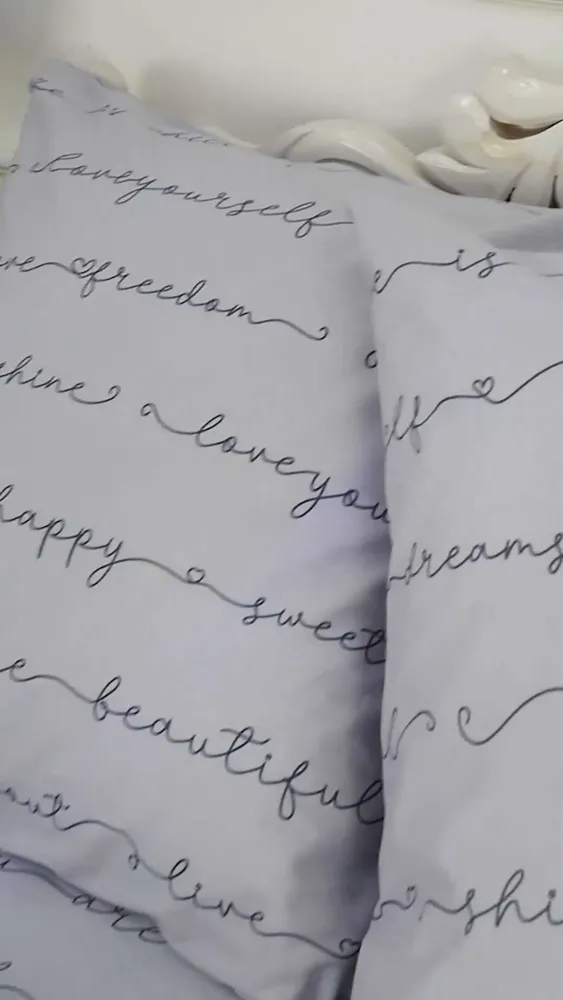 loveyourself
freedom
hine loveyou
happy sweet
beautiful
live
are
is
lf
dreams
shi